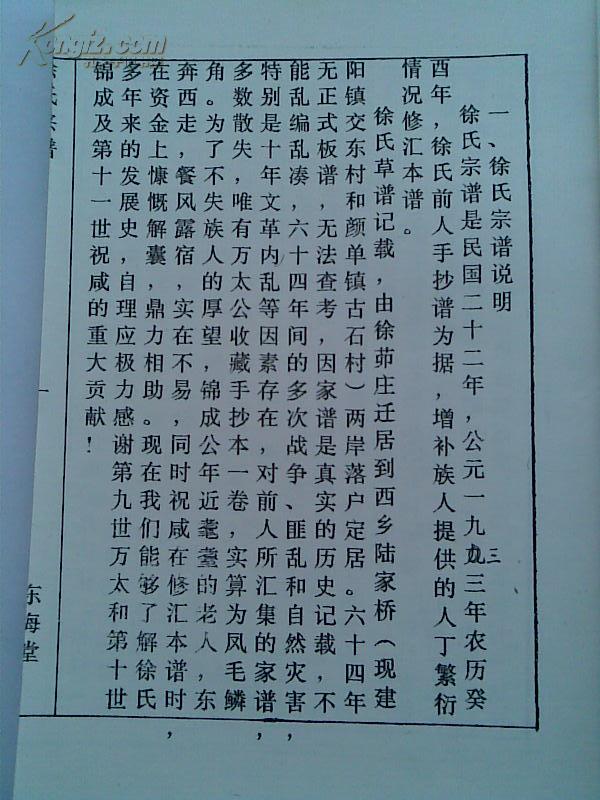 一、徐氏宗谱说明
徐氏宗谱是民国二十二年，公元一九九三三年农历癸
酉年，徐氏前人手抄谱为据，增补族人提供的人丁繁衍
情况修汇本谱。
徐氏草谱记载，由徐茆庄迁居到西乡陆家桥（现建
阳镇交东村和颜单镇古石村）两岸落户定居。六十四年
无正式板谱，无法查考，因家谱是真实的历史记载，不
能乱编乱凑，六十四年间的多次战争、匪乱和自然灾害，
特别是十年文革内乱等因素存在，对前人所汇集的家谱，
多数散失，唯有万太公收藏手抄本一卷，实算为凤毛鳞
角。为了不失族人的厚望，锦成公年近耄耋的老人，东
奔西走，餐风露宿，实在不易，同时祝咸在修汇本谱时，
在资金上慷慨解囊，鼎力相助。现在我们能够了解徐氏
多年来的发展史，自理应极力感谢第九世万太和第十世
锦成及第十一世祝咸的重大贡献！
徐氏宗谱
一
东海堂
Kongfz.com